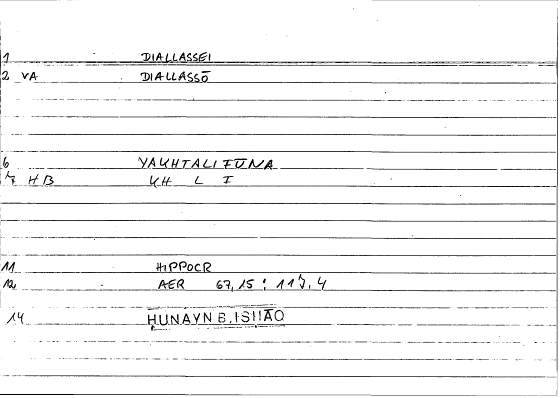 1 DIALLASSEI
2 VA DIALLASSŌ
6 YAKHTALIFŪNA
7 HB KH L F
11 HIPPOCR
12 AER 67,15 : 117,4
14 ḤUNAYN B. ISḤĀQ